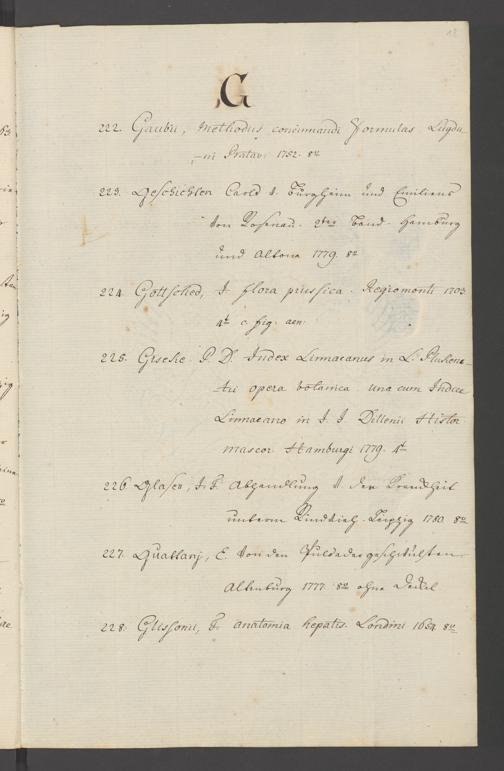 12
G
222. Gaubii, Methodus concinnandi Formulas Lugdu
ni Batav: 1752. 8º
223. Geschichten Carls v. Burgheim und Emiliens
von Rosenau. 2ter Band. Hamburg
und Altona 1779. 8º
224. Gottsched, J. flora prussica. Regiomonti 1703
4t c. fig. aen:
225. Giseke P. D. Index Linnaeanus in L. Plukene-
tii opera botanica. una cum Indice
Linnaeano in J. J. Dillenii Histor
muscor. Hamburgi 1779. 4t
226. Glaser, J. F. Abhandlung v. der Krankheit
unterm Rindvieh. Leipzig 1780. 8º
227. Guattani, E. von den Pulsadergeschwülsten
Altenburg 1777. 8º ohne Deckel
228. Glissonii, F. anatomia hepatis. Londini 1654. 8º